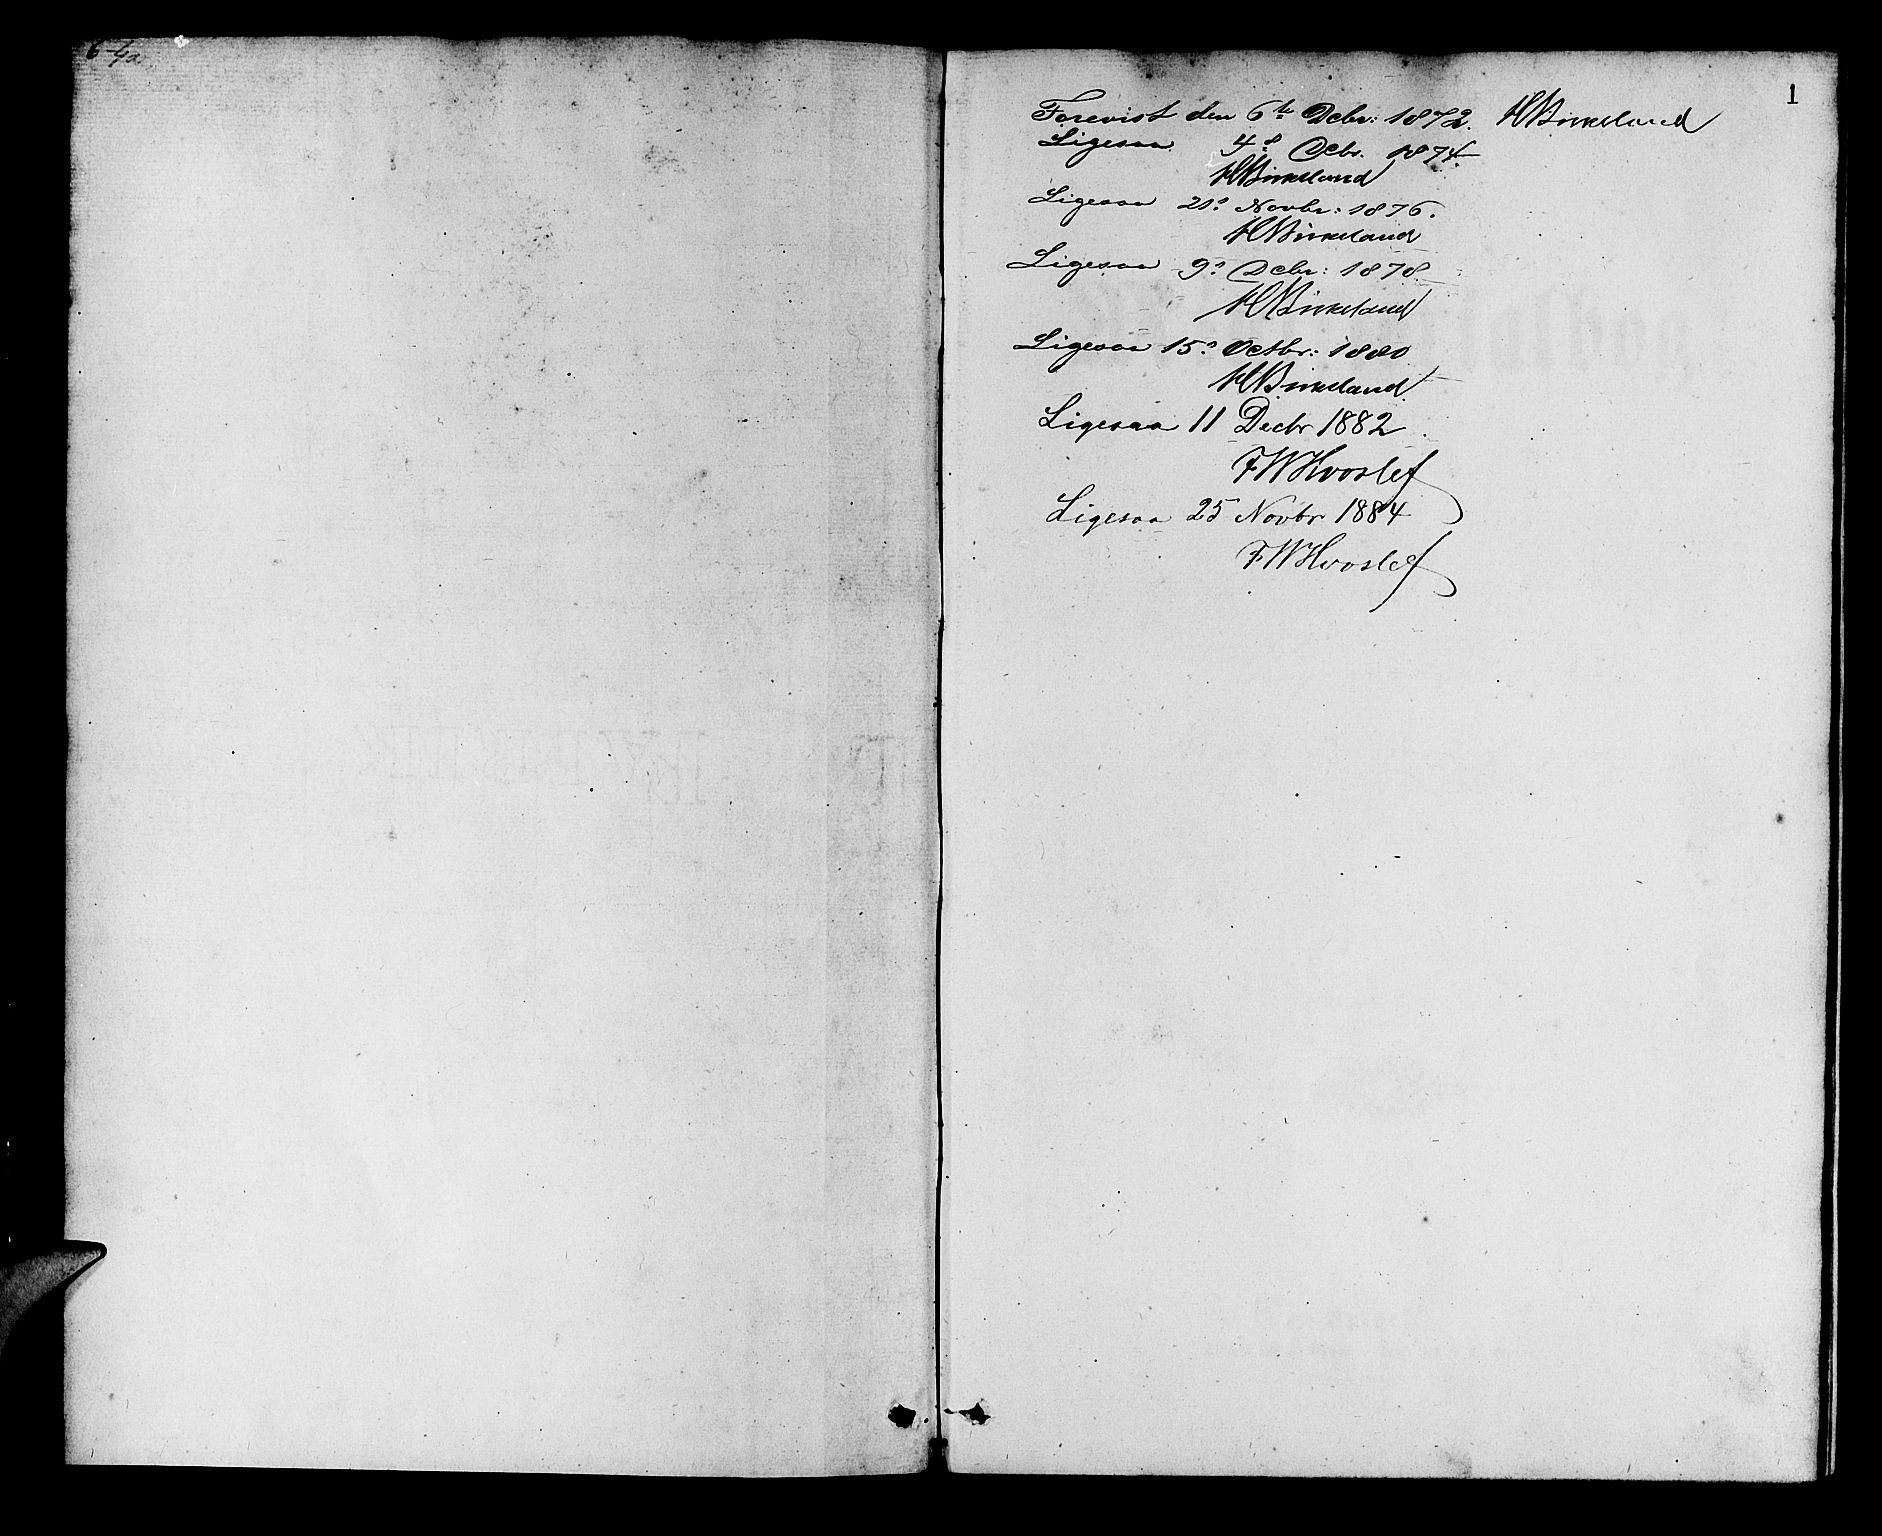 6-4a
1
Forevist den 6te Decbr: 1872. HBirkeland
Ligesaa 4d Decbr. 1874
HBirkeland
Ligesaa 21d Novbr: 1876.
HBirkeland
Ligesaa 9d Decbr: 1878
HBirkeland
Ligesaa 15d Octbr: 1880
HBirkeland
Ligesaa 11 Decbr 1882
FWHvoslef
Ligesaa 25 Novbr 1884
FWHvoslef